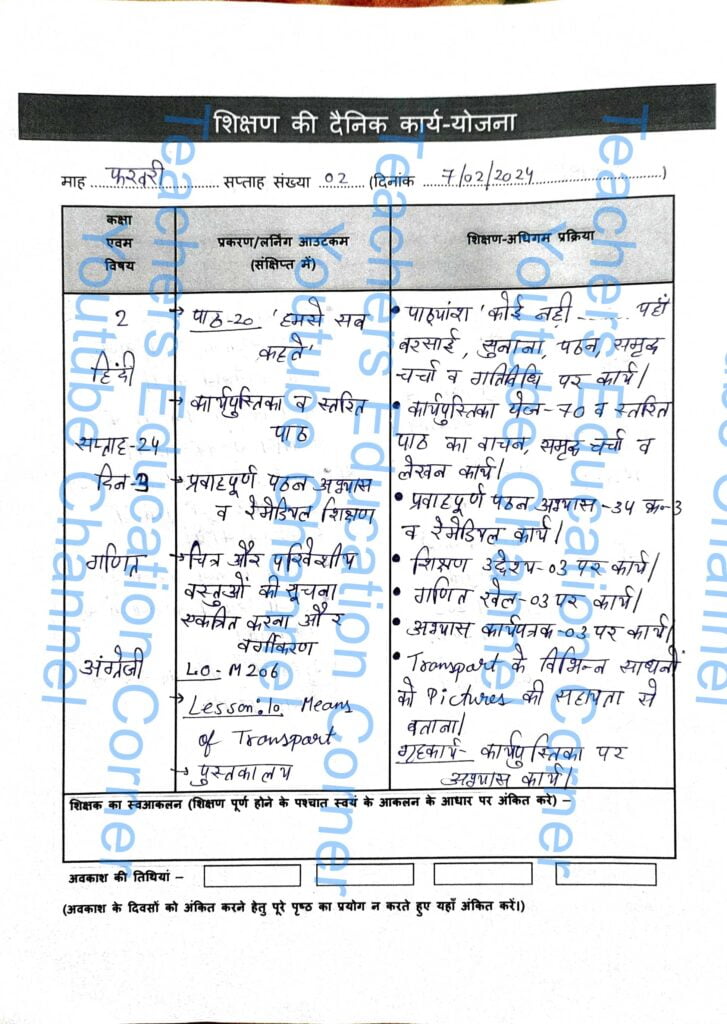 शिक्षण की दैनिक कार्य-योजना
माह फरवरी सप्ताह संख्या 02 (दिनांक 7/02/2024)
कक्षा एवम विषय
प्रकरण/लर्निंग आउटकम (संक्षिप्त में)
शिक्षण-अधिगम प्रक्रिया
2
हिंदी
सप्ताह-24
दिन-3
गणित
अंग्रेजी
→ पाठ-20 'हमसे सब
कहते'
→ कार्यपुस्तिका व स्तरित
पाठ
→ प्रवाहपूर्ण पठन अभ्यास
व रेमेडियल शिक्षण
→ चित्र और परिवेशीय
वस्तुओं की सूचना
एकत्रित करना और
वर्गीकरण
LO-M206
→ Lesson:10 Means
of Transpart
→ पुस्तकालय
• पाठ्यांश 'कोई नही ...... यहाँ
बरसाई, सुनाना, पठन, समृद्ध
चर्चा व गतिविधि पर कार्य।
• कार्यपुस्तिका पेज-70 व स्तरित
पाठ का वाचन, समृद्ध चर्चा व
लेखन कार्य।
• प्रवाहपूर्ण पठन अभ्यास -34 क्र-3
व रेमेडियल कार्य।
• शिक्षण उद्देश्य-03 पर कार्य।
• गणित खेल-03 पर कार्य।
• अभ्यास कार्यपत्रक-03 पर कार्य।
• Transpart के विभिन्न साधनों
को Pictures की सहायता से
बताना।
गृहकार्य- कार्यपुस्तिका पर
अभ्यास कार्य।
शिक्षक का स्वआकलन (शिक्षण पूर्ण होने के पश्चात स्वयं के आकलन के आधार पर अंकित करे) –
अवकाश की तिथियां –
(अवकाश के दिवसों को अंकित करने हेतु पूरे पृष्ठ का प्रयोग न करते हुए यहाँ अंकित करें।)
Teachers Education Corner
Youtube Channel
Teachers Education Corner
Youtube Channel
Teachers Education Corner
Youtube Channel